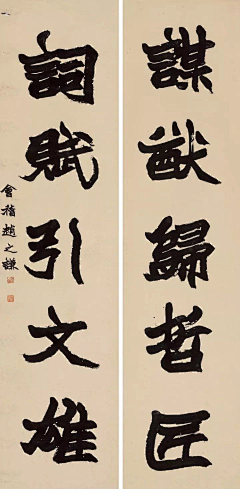 謀猷歸哲匠
詞賦引文雄
會稽趙之謙